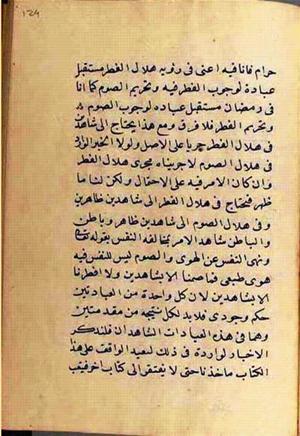 ١٢٤
حرام فانا فيه اعنى فى رؤية هلال الفطر مستقبل
عبادة لوجوب الفطر فيه وتحريم الصوم كما انا
فى رمضان مستقبل عباده لوجوب الصوم
وتحريم الفطر فلا فرق ومع هذا يحتاج الى شاهدين
فى هلال الفطر جريا على الاصل ولولا الخبر الوارد
فى هلال الصوم لاجريناه مجرى هلال الفطر
وان كان الامر فيه على الاحتمال ولكن لنا ما
ظهر فنحتاج فى هلال الفطر الى شاهدين ظاهرين
وفى هلال الصوم الى شاهدين ظاهر وباطن
والباطن شاهد الامر بمخالفة النفس بقوله تعالى
ونهى النفس عن الهوى والصوم ليس للنفس فيه
هوى طبيعى فما صمنا الا بشاهدين ولا افطرنا
الا بشاهدين لان كل واحدة من العبادتين
حكم وجودى فلابد لكل نتيجة من مقدمتين
وهما فى هذه العبادات الشاهدان فلنذكر
الاخبار الواردة فى ذلك ليعيد الواقف على هذا
الكتاب ماخذنا حتى لا يفتقر الى كتاب اخر فيتعب